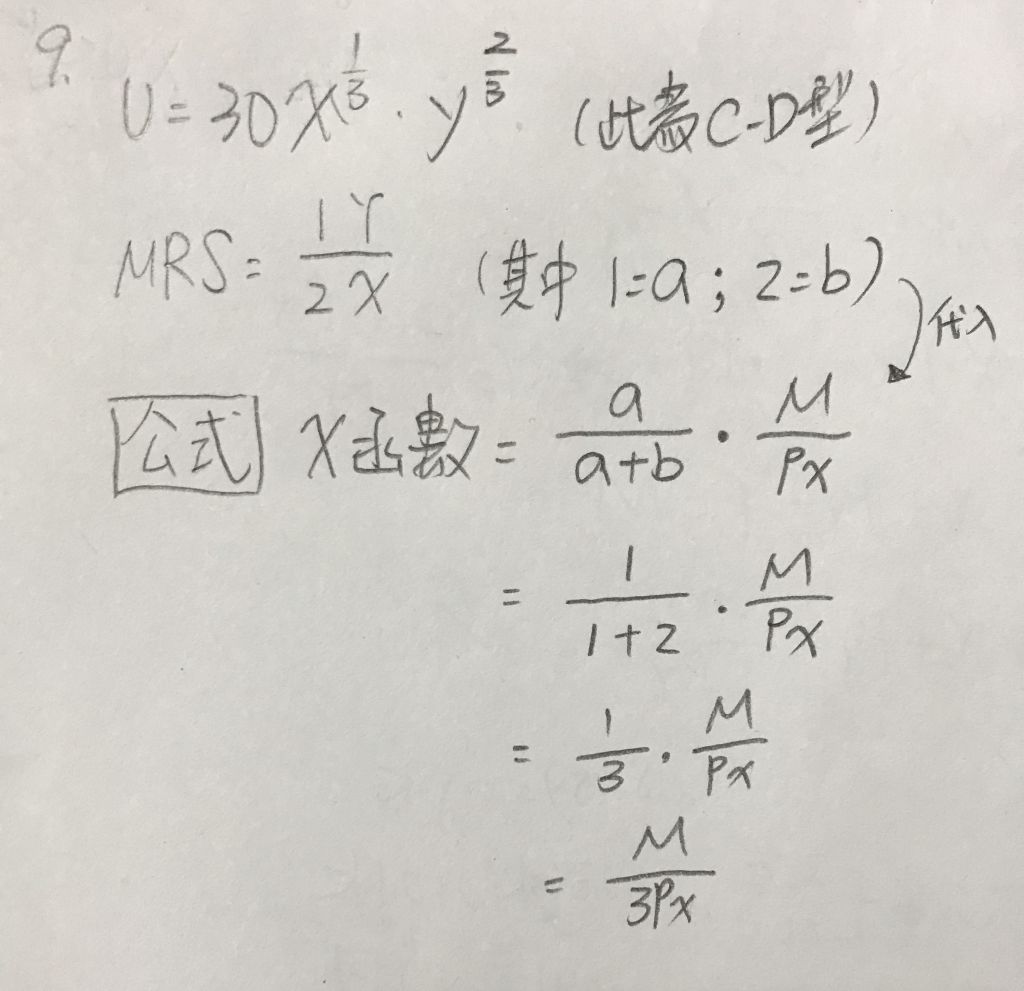 9.
U = 30X^(1/3) · y^(2/3) (此為C-D型)
MRS = 1Y/2X (其中 1=a ; 2=b)
代入
公式 X函數 = a/(a+b) · M/Px
= 1/(1+2) · M/Px
= 1/3 · M/Px
= M/3Px